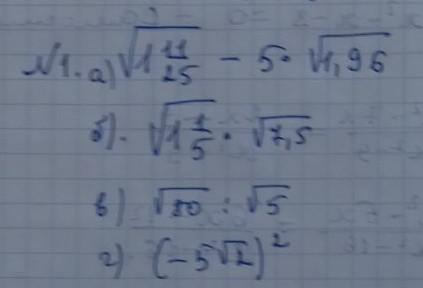 №1. а) √(1 11/25) - 5 · √1,96
б). √(1 1/5) · √7,5
в) √20 : √5
г) (-5√2)²